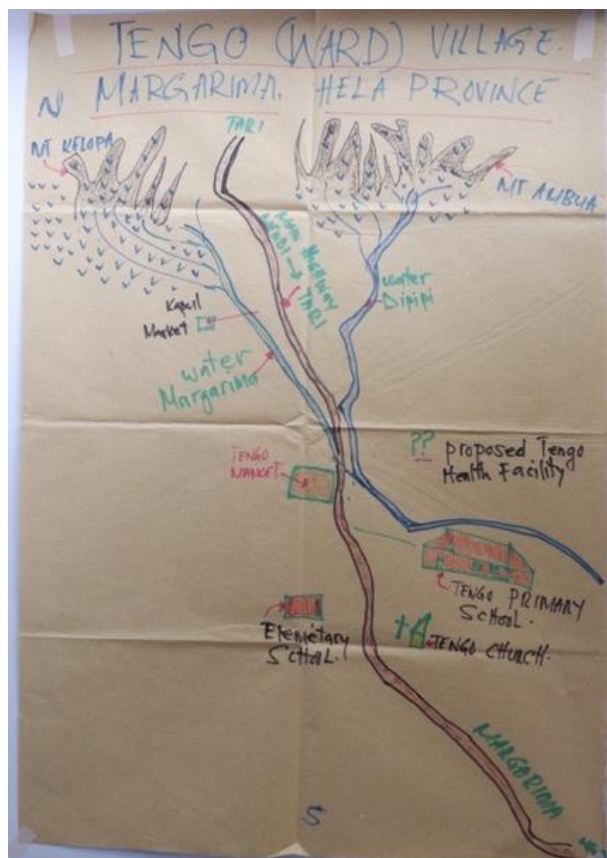 TENGO (WARD) VILLAGE.
MARGARIMA. HELA PROVINCE
N
MT KELOPA
TARI
MT AMBUA
MAIN HIGHWAY
MENDI → TARI
Water
Dipipi
Kapul
Market
Water
Margarima
TENGO
MARKET
?? proposed Tengo
Health Facility
TENGO PRIMARY
SCHOOL.
Elemetary
School.
TENGO CHURCH.
MARGARIMA
S